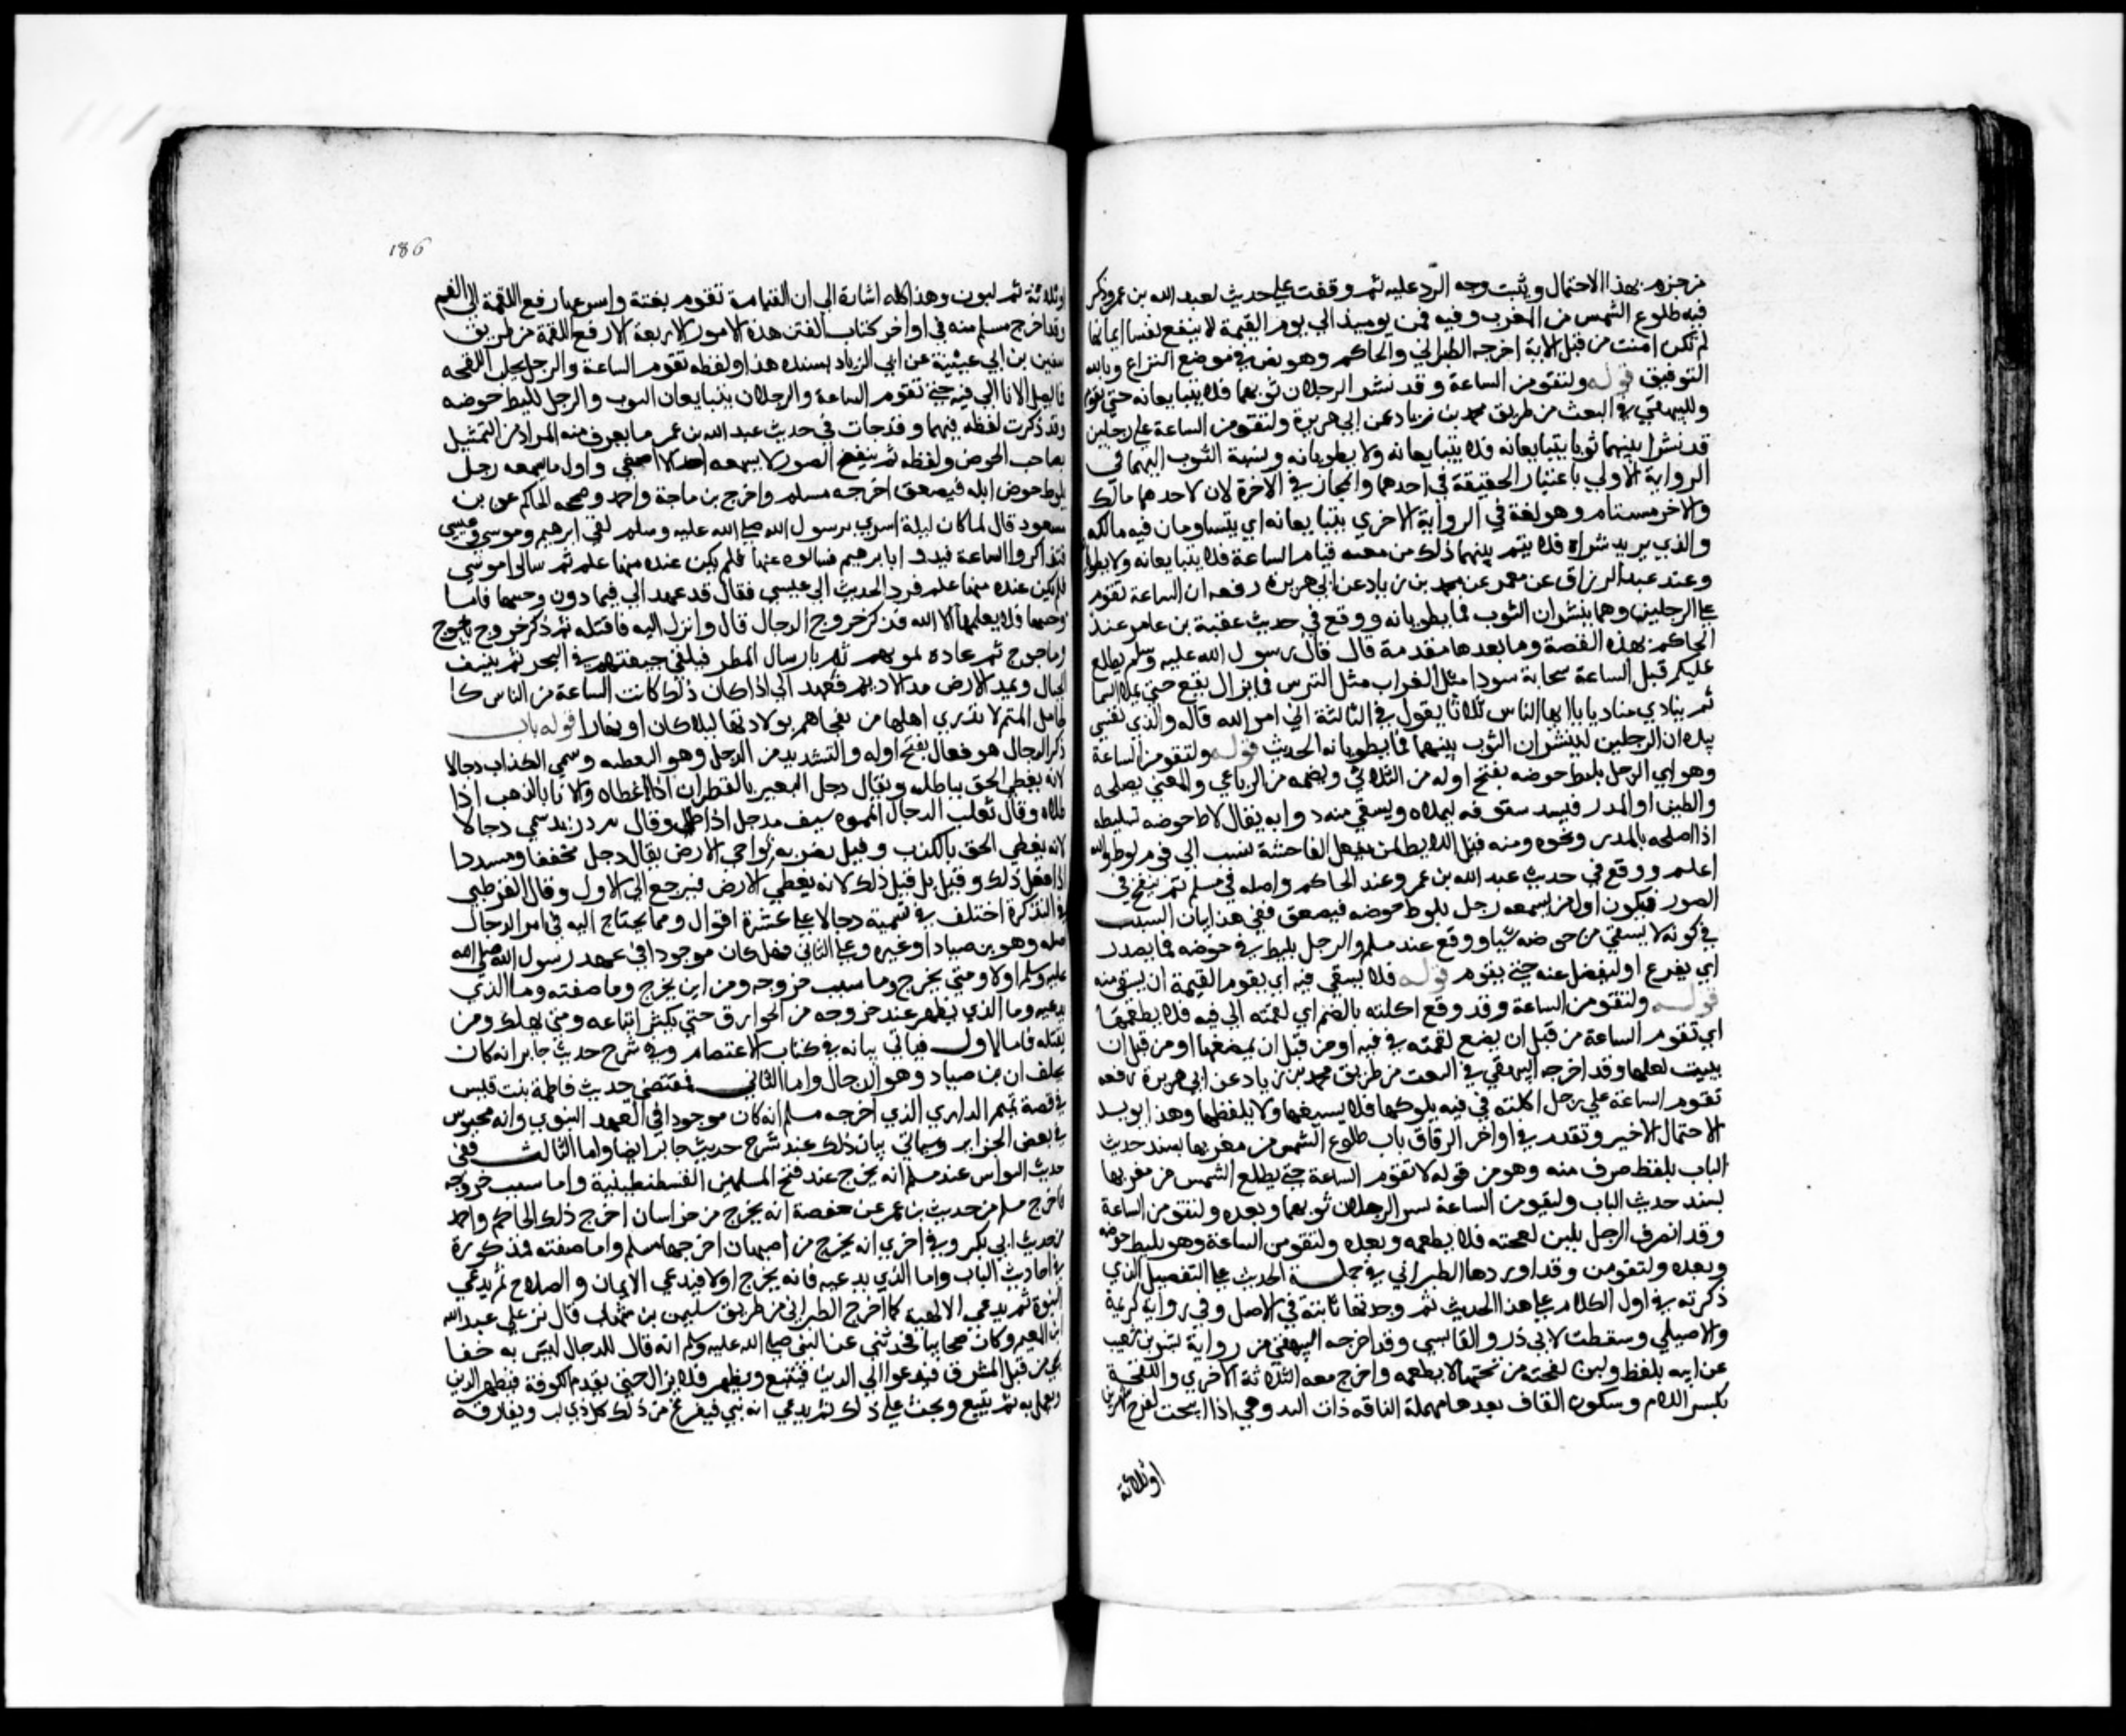 من جزم بهذا الاحتمال ويثبت وجه الرد عليه ثم وقفت على حديث لعبد الله بن عمرو ذكر
فيه طلوع الشمس من المغرب وفيه فمن يوميذ الي يوم القيمة لا ينفع نفسا ايمانها
لم تكن امنت من قبل الاية اخرجه الطبراني والحاكم وهو نص في موضع النزاع وبالله
التوفيق قوله ولتقومن الساعة وقد نشر الرجلان ثوبهما فلا يتبايعانه حتى تقوم
وللبيهقي في البعث من طريق محمد بن زياد عن ابي هريرة ولتقومن الساعة على رجلين
قد نشرا بينهما ثوبا يتبايعانه فلا يتبايعانه ولا يطويانه ونسبة الثوب اليهما في
الرواية الاولي باعتبار الحقيقة في احدهما والمجاز في الاخرة لان لاحدهما مالك
والاخر مستام وهو لغة في الرواية الاخري يتبايعانه اي يتساومان فيه مالكه
والذي يريد شراه فلا يتم بينهما ذلك من معسه قيام الساعة فلا يتبايعانه ولا يطويا
وعند عبد الرزاق عن معمر عن محمد بن زياد عن ابي هريرة رفعه ان الساعة تقوم
على الرجلين وهما ينشران الثوب فما يطويانه ووقع في حديث عقبة بن عامر عند
الحاكم بهذه القصة وما بعدها مقدمة قال قال رسول الله عليه وسلم يطلع
عليكم قبل الساعة سحابة سودا مثل الغراب مثل الترس فما يزال يقع حتى يملا السما
ثم ينادي مناد يا ايها الناس ثلاثا يقول في الثالثة اتي امر الله قاله والذي نفسي
بيده ان الرجلين لينشران الثوب بينهما فما يطويانه الحديث قوله ولتقومن الساعة
وهو اي الرجل يليط حوضه بفتح اوله من الثلاثي وبضمه من الرباعي والمعني يصلحه
والطين او المدر فيسد سقوفه ليملاه ويسقي منه د وابه يقال لاط حوضه تليطه
اذا اصلحه بالمدر ونحوه ومنه قيل اللايط لمن يفعل الفاحشة نسب الي قوم لوط والله
اعلم ووقع في حديث عبد الله بن عمر وعند الحاكم واصله في مسلم ثم ينفخ في
الصور فيكون اول من يسمعه رجل يلوط حوضه فيصعق ففي هذا بيان السبب
في كونه لا يسقي من حوضه شيا ووقع عند مسلم والرجل يليط في حوضه فما يصدر
اي يفرغ او ليفضل عنه حتى يقوم قوله فلا يسقي فيه اي يقوم القيمة ان يسقي منه
قوله ولتقومن الساعة وقد وقع اكلته بالضم اي لقمته الي فيه فلا يطعمها
اي تقوم الساعة من قبل ان يضع لقمته في فيه او من قبل ان يمضغها او من قبل ان
يبيت لعلها وقد اخرجه البيهقي في البعث من طريق محمد بن زياد عن ابي هريرة رفعه
تقوم الساعة علي رجل اكلته في فيه يلوكها فلا يسيغها ولا يلفظها وهذا يويد
الاحتمال الاخير وتقدم في اواخر الرقاق باب طلوع الشمس من مغربها بسند حديث
الباب بلفظ صرف منه وهو من قوله لا تقوم الساعة حتى يطلع الشمس من مغربها
بسند حديث الباب ولتقومن الساعة نسر الرجلان ثوبهما وبعده ولتقومن الساعة
وقد انصرف الرجل بلبن لقحته فلا يطعمه وبعده ولتقومن الساعة وهو يليط حوضه
وبعده ولتقومن وقد اوردها الطبراني في جملة الحديث على التفصيل الذي
ذكرته في اول الكلام على هذا الحديث ثم وجدتها ثابتة في الاصل وفي رواية كريمة
والاصيلي وسقطت لابي ذر والقابسي وقد اخرجه البيهقي من رواية بشر بن شعيب
عن ابيه بلفظ ولبن لقحته من تحتها لا يطعمه واخرج معه الثلاثة الاخري واللقحة
بكسر اللام وسكون القاف بعدها مهملة الناقه ذات الدر وهي اذا انتجت لقوح شهرين
اوثلاثة
186
اوثلاثة ثم لبون وهذا كله اشارة الي ان القيامة تقوم بغتة واسرعها رفع اللقمة الي الفم
وقد اخرج مسلم منه في اواخر كتاب الفتن هذه الامور الاربعة الا رفع اللقمة من طريق
سفين بن ابي عيينة عن ابي الزياد بسنده هذا ولفظه تقوم الساعة والرجل يحلب اللقحه
فما يصل الانا الي فيه حتى تقوم الساعة والرجلان يتبايعان الثوب والرجل يليط حوضه
وقد ذكرت لفظه فيهما وقد جات في حديث عبد الله بن عمر ما يعرف منه المراد من التمثيل
بصاحب الحوض ولفظه ثم ينفخ الصور لا يسمعه احد الا اصغي واول ما يسمعه رجل
يلوط حوض ابله فيصعق اخرجه مسلم واخرج بن ماجة واحمد وصححه الحاكم عن بن
مسعود قال لما كان ليلة اسري برسول الله صلى الله عليه وسلم لقي ابرهيم وموسي وعيسى
فتذاكروا الساعة فبدوا بابرهيم فسالوه عنها فلم يكن عنده منها علم ثم سالوا موسي
فلم يكن عنده منها علم فرد الحديث الي عيسي فقال قد عهد الي فيما دون وجبها فاما
وجبها فلا يعلمها الا الله فذكر خروج الدجال قال وانزل اليه فاقتله ثم ذكر خروج ياجوج
وماجوج ثم عاده لموتهم ثم بارسال المطر فيلقي جيفتهم في البحر ثم ينسف
الجبال ويمد الارض مد الاديم فعهد الي اذا كان ذلك كانت الساعة من الناس كا
لحامل المتم لا تدري اهلها من تفجاهم بولادتها ليلا كان او نهارا قوله باب
ذكر الدجال هو فعال بفتح اوله والتشديد من الدجل وهو التغطيه وسمي الكذاب دجالا
لانه يغطي الحق بباطله ويقال دجل البعير بالقطران اذا غطاه والانا بالذهب اذا
طلاه وقال ثعلب الدجال المموه سيف مدجل اذا طلي وقال بن دريد سمي دجالا
لانه يغطي الحق بالكذب وقيل بضربه نواحي الارض يقال دجل مخففا ومشددا
اذا فعل ذلك وقيل بل قيل ذلك لانه يغطي الارض فيرجع الي الاول وقال القرطبي
في التذكرة اختلف في تسميته دجالا على عشرة اقوال ومما يحتاج اليه في امر الدجال
اصله وهو بن صياد او غيره وعلى الثاني فهل كان موجودا في عهد رسول الله صلى الله
عليه وسلم اولا ومتي يخرج وما سبب خروجه ومن اين يخرج وما صفته وما الذي
يدعيه وما الذي يظهر عند خروجه من الخوارق حتى يكثر اتباعه ومتي يهلك ومن
يقتله فاما الاول فياتي بيانه في كتاب الاعتصام وفي شرح حديث جابر انه كان
يحلف ان بن صياد وهو الدجال واما الثاني فمقتضي حديث فاطمة بنت قيس
في قصة تميم الداري الذي اخرجه مسلم انه كان موجودا في العهد النبوي وانه محبوس
في بعض الجزاير وسياتي بيان ذلك عند شرح حديث جابر ايضا واما الثالث ففي
حديث النواس عند مسلم انه يخرج عند فتح المسلمين القسطنطينية واما سبب خروجه
فاخرج مسلم من حديث بن عمر عن حفصة انه يخرج من خراسان اخرج ذلك الحاكم واحمد
من حديث ابي بكر وفي اخري انه يخرج من اصبهان اخرجها مسلم واما صفته فمذكورة
في احاديث الباب واما الذي يدعيه فانه يخرج اولا فيدعي الايمان والصلاح ثم يدعي
النبوة ثم يدعي الالهية كما اخرج الطبراني من طريق سليمن بن شهاب قال نزل علي عبد الله
ابن المعتم وكان صحابيا فحدثني عن النبي صلى الله عليه وسلم انه قال للدجال ليس به خفا
يجي من قبل المشرق فيدعوا الي الدين فيتبع ويظهر فلا يزال حتى يقدم الكوفة فيظهر الدين
ويعمل به ثم يتبع ويحث على ذلك ثم يدعي انه نبي فيفزع من ذلك كل ذي لب ويفارقه